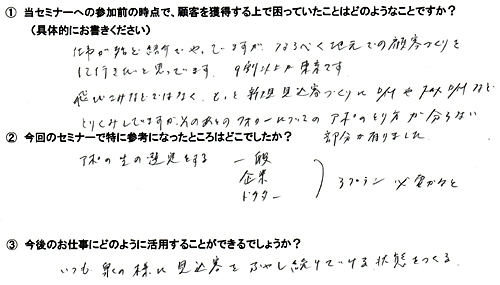 ① 当セミナーへの参加前の時点で、顧客を獲得する上で困っていたことはどのようなことですか？
（具体的にお書きください）
仕事が殆ど紹介でやっていますが なるべく地元での顧客づくりを
して行きたいと思っています。 9割以上が東京です
飛びこみなどではなく、もっと新規見込客づくりに DMや FAX DMなど
とりくみしていますが、そのあとのフォローについての アポのとり方が分らない
部分が有りました
② 今回のセミナーで特に参考になったところはどこでしたか？
アポの生の 意見をする 一般
企業
ドクター
3プラン 必要かなと
③ 今後のお仕事にどのように活用することができるでしょうか？
いつも 泉の様に 見込客を ふやし続けていける 状態をつくる